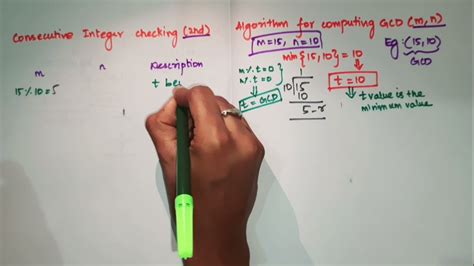 Consecutive Integer checking (2nd) Algorithm for computing GCD (m, n)
m=15, n=10
Eg: (15,10)
GCD
min {15,10} = 10
m n Description
m % t = 0
n % t = 0
t = GCD
1
10 15
10
5-r
t = 10
t value is the
minimum value
15 % 10 = 5
t bei